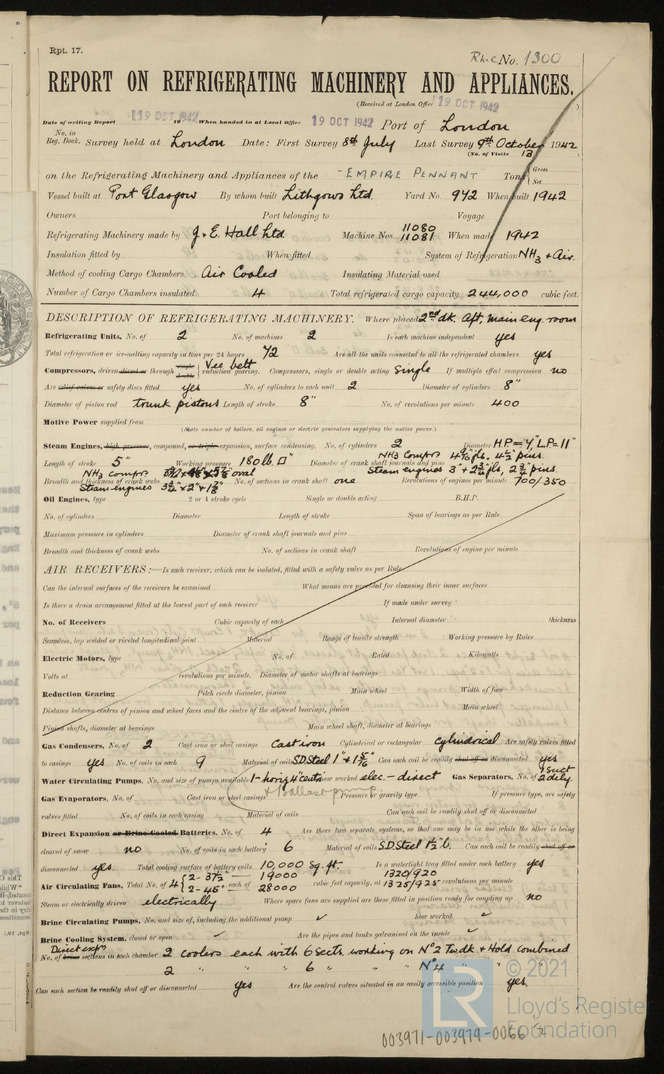 Rpt. 17.
Rhc No. 1300
REPORT ON REFRIGERATING MACHINERY AND APPLIANCES.
(Received at London Office 19 OCT 1942)
Date of writing Report 19 OCT 1942 19 When handed in at Local Office 19 OCT 1942 Port of London
No. in Reg. Book. Survey held at London Date: First Survey 8th July Last Survey 9th October 1942
(No. of Visits 13)
on the Refrigerating Machinery and Appliances of the "EMPIRE PENNANT" Tons Gross Net
Vessel built at Port Glasgow By whom built Lithgows Ltd Yard No. 972 When built 1942
Owners Port belonging to Voyage
Refrigerating Machinery made by J. & E. Hall Ltd Machine Nos. 11080 11081 When made 1942
Insulation fitted by When fitted System of Refrigeration NH3 & Air.
Method of cooling Cargo Chambers Air Cooled Insulating Material used
Number of Cargo Chambers insulated 4 Total refrigerated cargo capacity 244,000 cubic feet.
DESCRIPTION OF REFRIGERATING MACHINERY. Where placed 2nd dk. Aft, Main eng. room
Refrigerating Units, No. of 2 No. of machines 2 Is each machine independent yes
Total refrigeration or ice-melting capacity in tons per 24 hours 72 Are all the units connected to all the refrigerated chambers yes
Compressors, driven direct or through single double reduction gearing. Vee belt Compressors, single or double acting Single If multiple effect compression no
Are relief valves or safety discs fitted yes No. of cylinders to each unit 2 Diameter of cylinders 8"
Diameter of piston rod trunk pistons Length of stroke 8" No. of revolutions per minute 400
Motive Power supplied from
(State number of boilers, oil engines or electric generators supplying the motive power.)
Steam Engines, high pressure, compound, or triple expansion, surface condensing. No. of cylinders 2 Diameter H.P.=7" L.P=11"
Length of stroke 5" Working pressure 180 lb. □" Diameter of crank shaft journals and pins NH3 Compr 4 9/16" jls, 4½" pins.
NH3 compr oval Steam engines 3" + 2¾" jls, 2¾" pins
Breadth and thickness of crank webs Steam engines 3¾" × 2" + 1⅞" No. of sections in crank shaft one Revolutions of engines per minute 700/350
Oil Engines, type 2 or 4 stroke cycle Single or double acting B.H.P.
No. of cylinders Diameter Length of stroke Span of bearings as per Rule
Maximum pressure in cylinders Diameter of crank shaft journals and pins
Breadth and thickness of crank webs No. of sections in crank shaft Revolutions of engine per minute
AIR RECEIVERS:—Is each receiver, which can be isolated, fitted with a safety valve as per Rule
Can the internal surfaces of the receivers be examined What means are provided for cleaning their inner surfaces
Is there a drain arrangement fitted at the lowest part of each receiver If made under survey
No. of Receivers Cubic capacity of each Internal diameter thickness
Seamless, lap welded or riveted longitudinal joint Material Range of tensile strength Working pressure by Rules
Electric Motors, type No. of Rated Kilowatts
Volts at revolutions per minute. Diameter of motor shafts at bearings
Reduction Gearing Pitch circle diameter, pinion Main wheel Width of face
Distance between centres of pinion and wheel faces and the centre of the adjacent bearings, pinion Main wheel
Pinion shafts, diameter at bearings Main wheel shaft, diameter at bearings
Gas Condensers, No. of 2 Cast iron or steel casings Cast iron Cylindrical or rectangular Cylindrical Are safety valves fitted
to casings yes No. of coils in each 9 Material of coils S.D. Steel 1" & 1 5/16" Can each coil be readily shut off or disconnected yes
Water Circulating Pumps, No. and size of pumps available 1-horiz 4" cent. how worked elec - direct Gas Separators, No. of 1 Suct 2 dely.
+ Ballast pump
Gas Evaporators, No. of Cast iron or steel casings Pressure or gravity type If pressure type, are safety
valves fitted No. of coils in each casing Material of coils Can each coil be readily shut off or disconnected
Direct Expansion or Brine Cooled Batteries. No. of 4 Are there two separate systems, so that one may be in use while the other is being
cleared of snow no No. of coils in each battery 6 Material of coils S.D. Steel 1½" b. Can each coil be readily shut off or
disconnected yes. Total cooling surface of battery coils 10,000 Sq. ft. Is a watertight tray fitted under each battery yes
Air Circulating Fans, Total No. of 4 {2 - 37½" 2 - 45" each of 19000 28000 cubic feet capacity, at 1320/920 1325/925 revolutions per minute
Steam or electrically driven electrically Where spare fans are supplied are these fitted in position ready for coupling up no
Brine Circulating Pumps, No. and size of, including the additional pump ✓ how worked ✓
Brine Cooling System, closed or open ✓ Are the pipes and tanks galvanised on the inside ✓
Direct expn
No. of brine sections in each chamber 2 coolers each with 6 sects. working on No 2 Twdk & Hold combined
2 " " " 6 " " " No 4 " " "
Can each section be readily shut off or disconnected yes Are the control valves situated in an easily accessible position yes.
© 2021
LR
Lloyd's Register
Foundation
003971-003979-0066